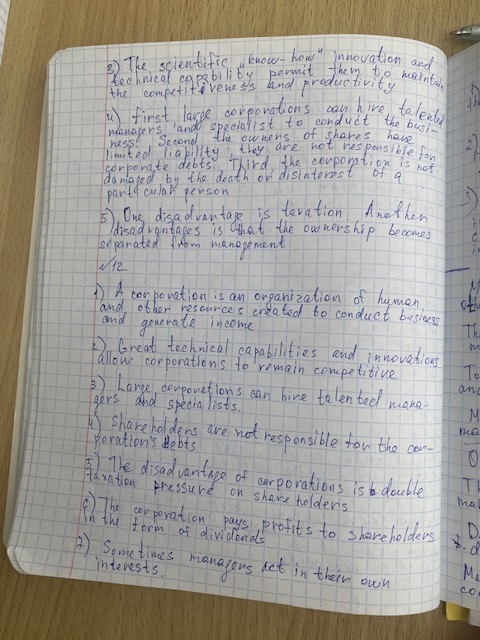 3) The scientific „know-how" innovation and
technical capability permit them to maintain
the competitiveness and productivity
4) First, large corporations can hire talented
managers and specialist to conduct the busi-
ness. Second the owners of shares have
limited liability they are not responsible for
corporate debts. Third, the corporation is not
damaged by the death or disinterest of a
particular person
5) One disadvantage is taxation Another
disadvantages is that the ownership becomes
separated from management
№12
1) A corporation is an organization of human
and other resources created to conduct business
and generate income
2) Great technical capabilities and innovations
allow corporations to remain competitive
3) Large corporations can hire talented mana-
gers and specialists.
4) Shareholders are not responsible for the cor-
poration's debts
5) The disadvantage of corporations is double
taxation pressure on shareholders
6) The corporation pays profits to shareholders
in the form of dividends
7) Sometimes managers act in their own
interests.